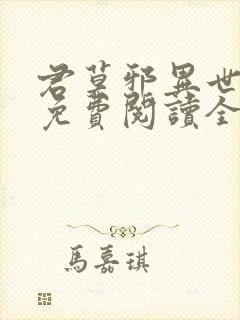 君莫邪異世
免費閱讀全
馬嘉琪